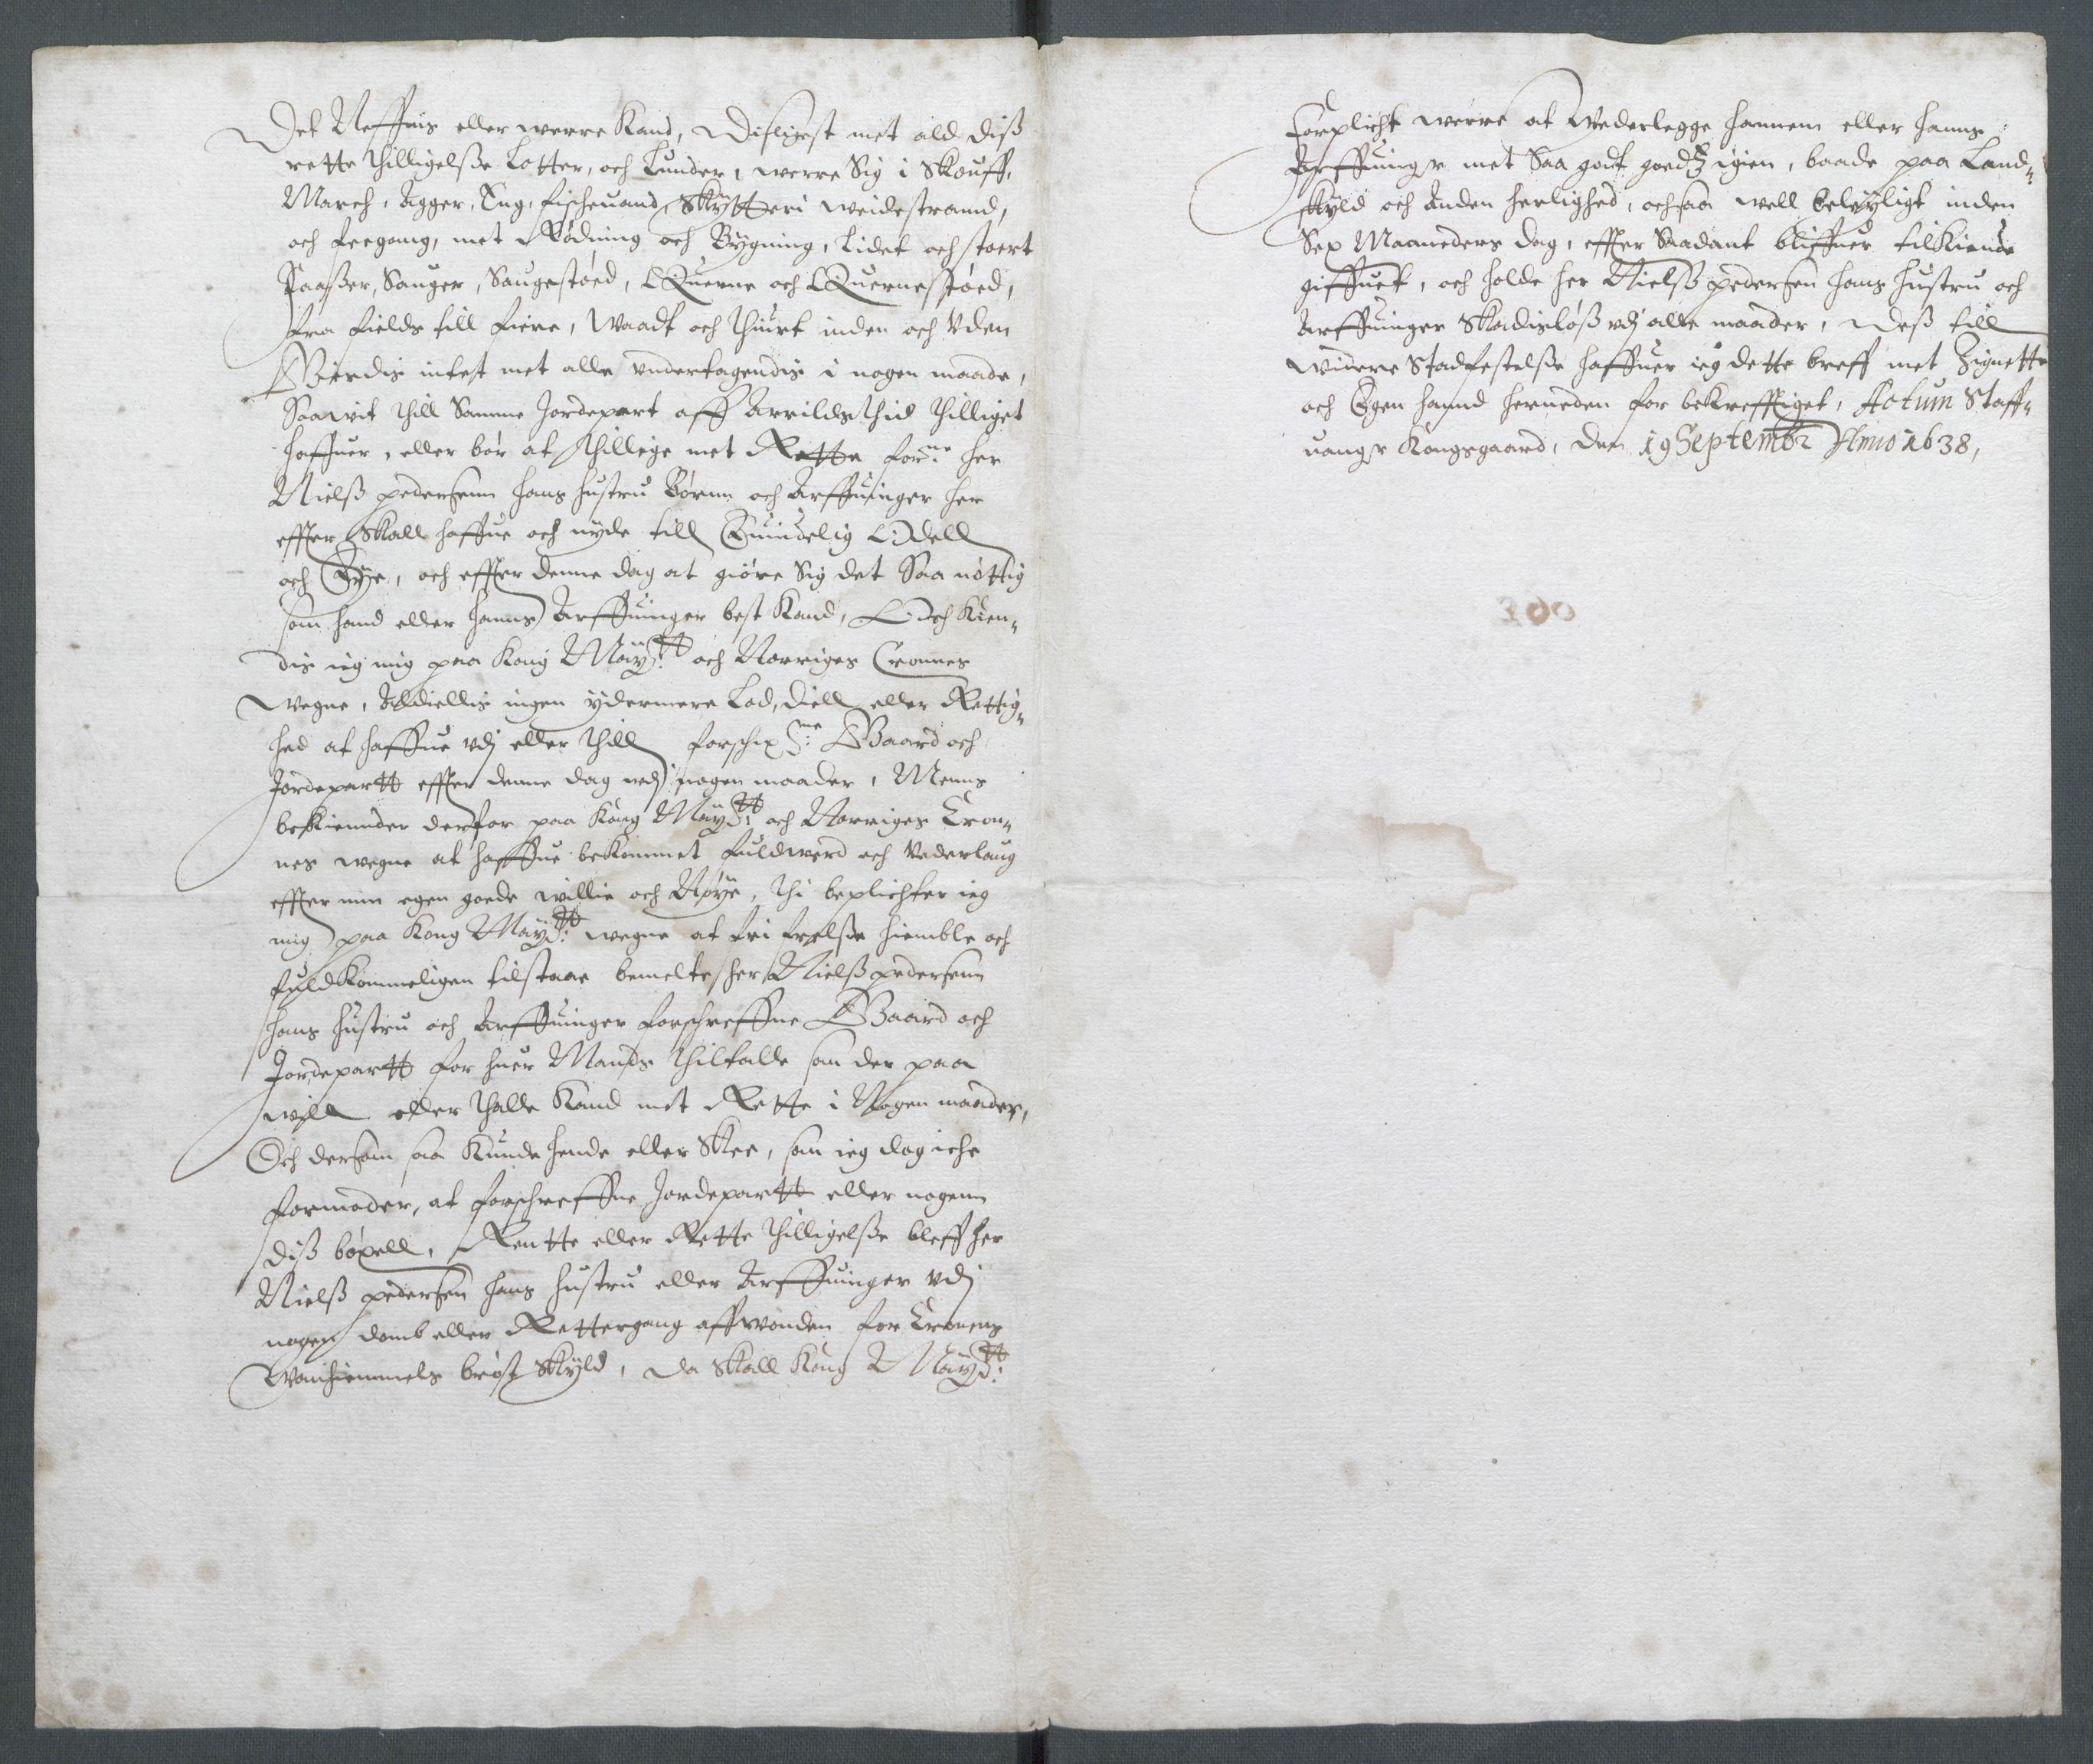 Det Neffnis eller werre Kand, Disligest met ald diß
rette thilligelße Lotter, och Lunder, werre Sig i Skouff,
March, Agger, Eng, fischeuand, Skÿtteri weidestrand,
och feegang, met Rödning och Bÿgning, Lidet och stoert
Paaßer, Sauger, Saugestöed, Querne och Quernestöed,
fra fields till fiere, Waadt och thiurt inden och Uden
Gierdis intet met alle undertagendis i nogen maade,
Saawit thill Samme Jordepart aff Arrildts thid thilliget
haffuer, eller bör at thillige met Rette for:ne her
Nielß pedersenn hans hustru Börnn och Arffuinger her
effter Skall haffue och nÿde till Euindelig Odell
och Eÿe, och effter denne dag at giöre Sig det Saa nöttig
som hand eller hanns Arffuinger best Kand, Och Kien„
dis ieg mig paa Kong Maÿ:tt och Norriges Cronnes
wegne, Alldiellis ingen ÿdermere Lod, diell eller Rettig„
hed at haffue udj eller thill forsch:ne Gaard och
Jordepartt effter denne dag udj nogen maader, Menns
bekiennder derfor paa Kong Maÿ:tt och Norriges Cron„
nes wegne at haffue bekommet fuldwerd och Vederlaug
effter min egen goede willie och Nöÿe, thi beplichter ieg
mig paa Kong Maÿ:tt wegne at fri frelße hiemble och
fuldkommeligen tilstaae bemelte her Nielß pedersenn
hans hustru och Arffuinger forschreffne Gaard och
Jordepartt for huer Mands thiltalle som der paa
will eller thalle Kand met Rette i Nogen maader,
Och dersom saa Kunde hende eller Skee, som ieg dog iche
formoder, at forschreffne Jordepartt eller nogenn
diß böxell, Rentte eller Rette thilligelße bleff her
Nielß pedersen hans hustru eller Arffuinger udj
nogen domb eller Rettergang affwonden for Cronens
Wanhiemmels bröst Skÿld, da Skall Kong Maÿ:tt
forplicht werre at Wederlegge hannem eller hanns
Arffuinger met Saa godt goedtz igien, baade paa Land„
skÿld och Anden herlighed, och saa well beleÿligt inden
Sex Maaneders dag, effter Saadant bliffuer tilkiende
giffuet, och holde her Nielß pedersen hans hustru och
Arffuinger Skadislöß udj alle maader, Deß till
widere Stadfestelße haffuer ieg dette breff met Zignette
och Egen hannd herneden for bekrefftiget, Actum Staff„
uanger Kongsgaard, Den 19 Septembr Anno 1638,